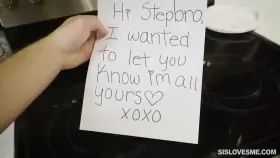 Hi Stepbro,
I wanted
to let you
know i'm all
yours♡
xoxo
SISLOVESME.COM